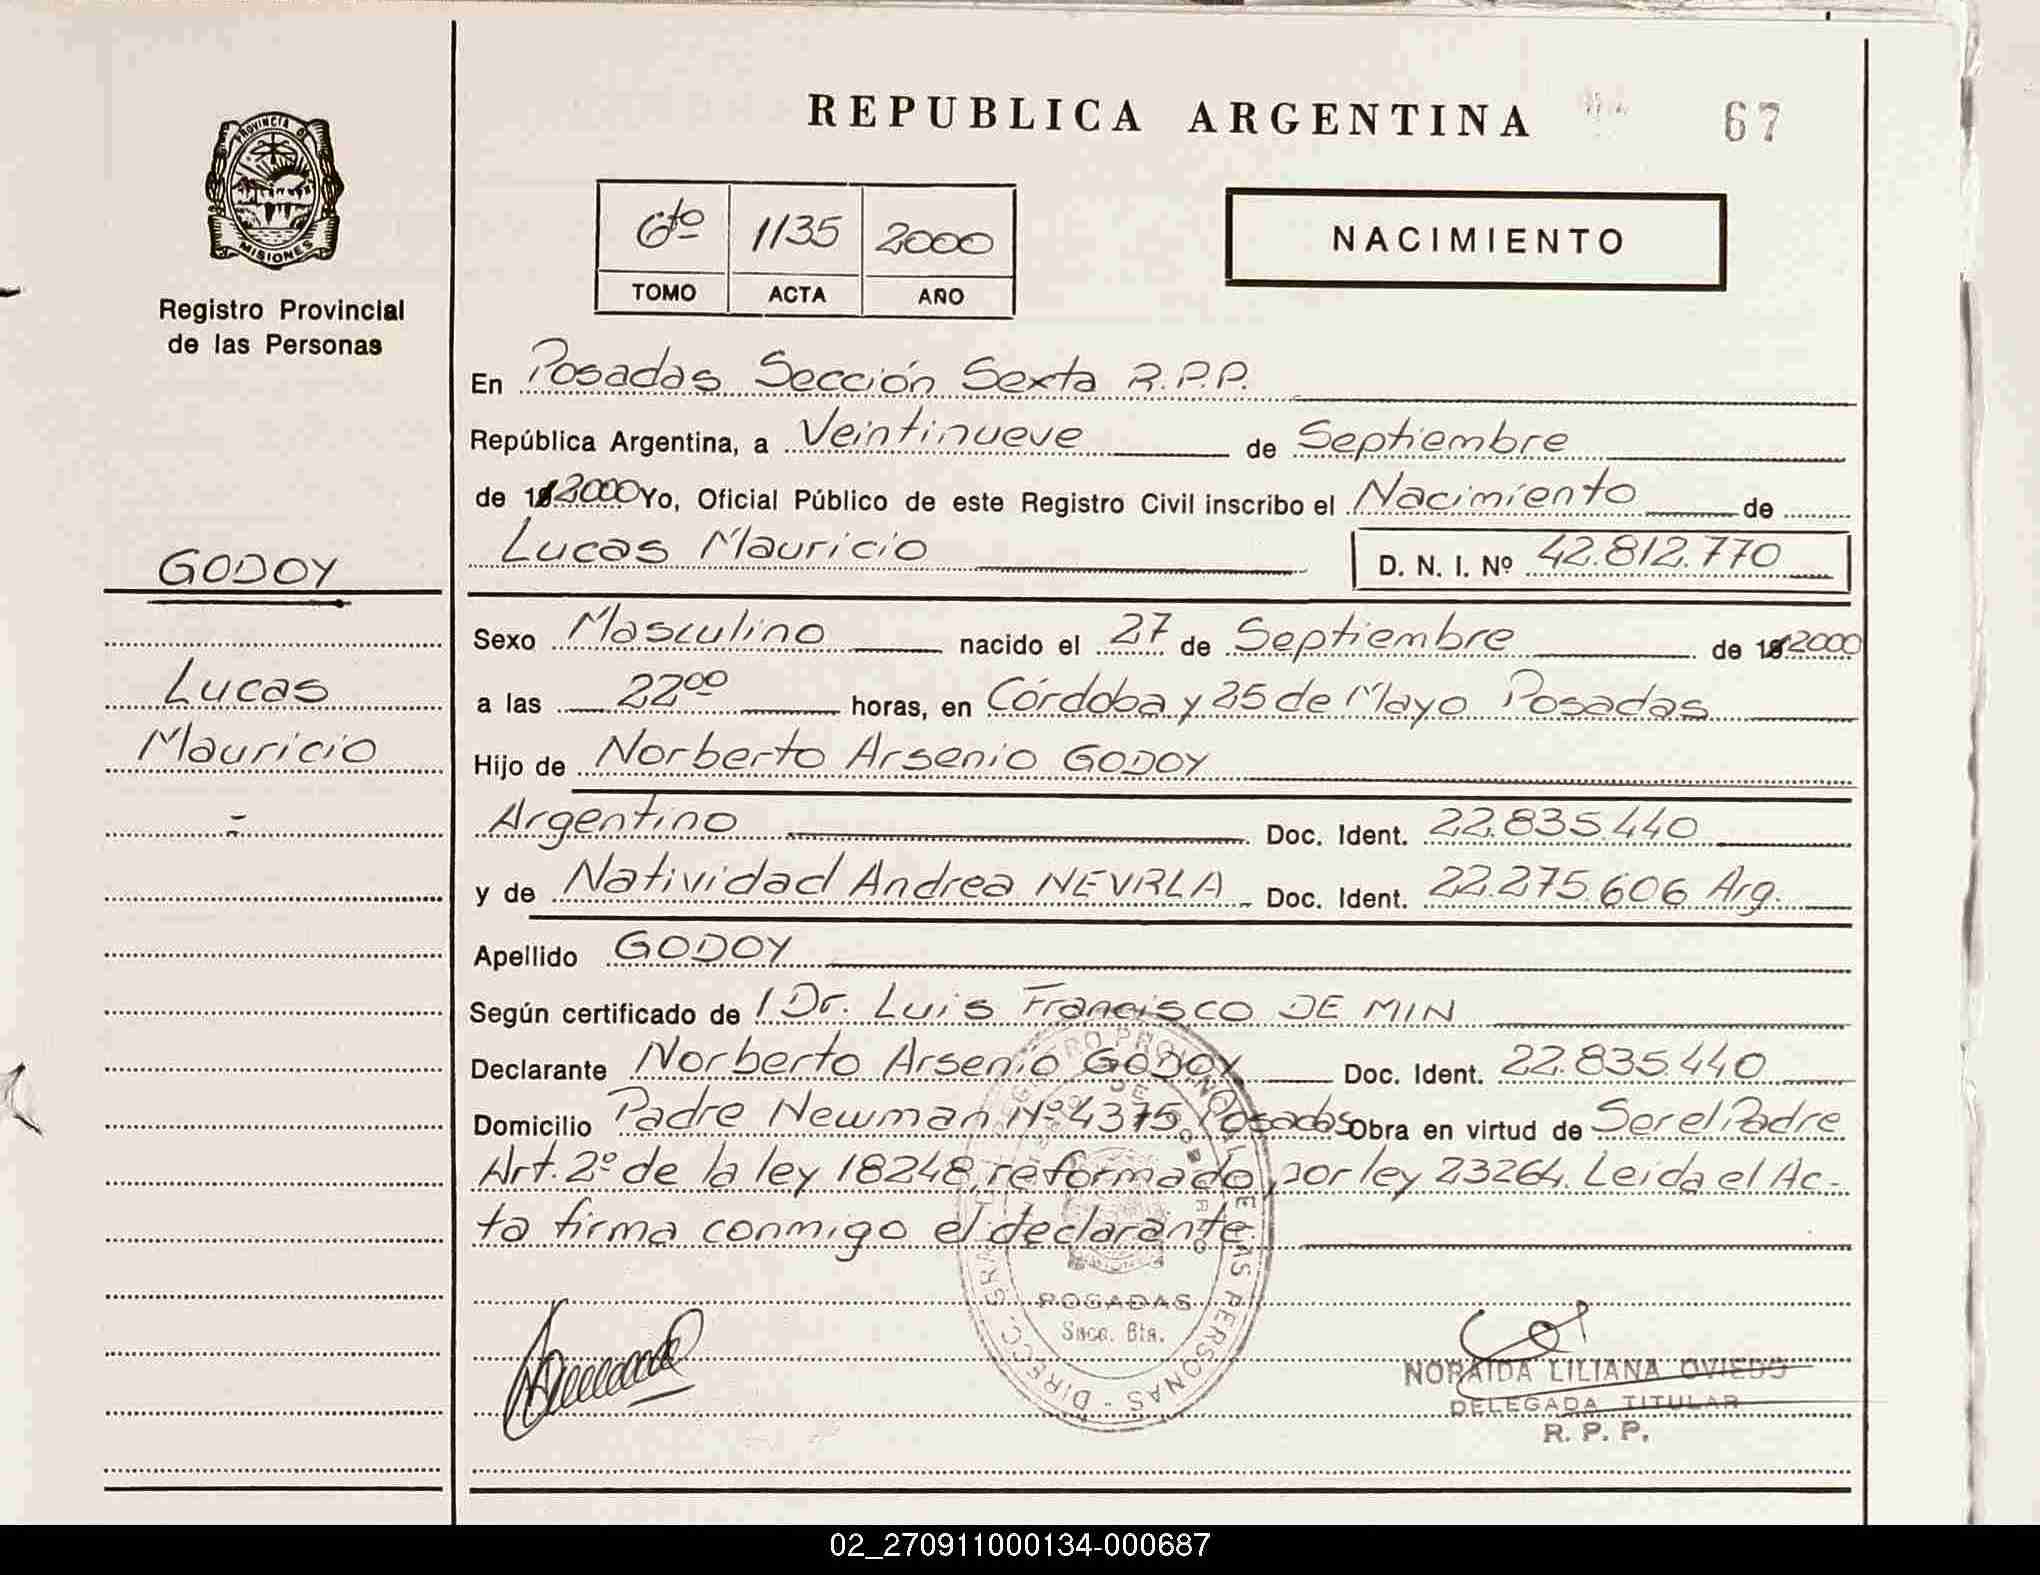 REPUBLICA ARGENTINA
67
PROVINCIA DE
MISIONES
Registro Provincial
de las Personas
6to 1135 2000
TOMO ACTA AÑO
NACIMIENTO
En Posadas Sección Sexta R.P.P.
República Argentina, a Veintinueve de Septiembre
de 2000 Yo, Oficial Público de este Registro Civil inscribo el Nacimiento de
Lucas Mauricio D. N. I. Nº 42.812.770
GODOY
Lucas
Mauricio
Sexo Masculino nacido el 27 de Septiembre de 2000
a las 2200 horas, en Córdoba y 25 de Mayo Posadas
Hijo de Norberto Arsenio GODOY
Argentino Doc. Ident. 22.835.440
y de Natividad Andrea NEVRLA Doc. Ident. 22.275.606 Arg.
Apellido GODOY
Según certificado de Dr. Luis Francisco DE MIN
Declarante Norberto Arsenio GODOY Doc. Ident. 22.835.440
Domicilio Padre Newman Nº 4375 Posadas Obra en virtud de Ser el Padre
Art. 2º de la ley 18248, reformado por ley 23264. Leída el Ac-
ta firma conmigo el declarante.
POSADAS
Secc. 6ta.
NORAIDA LILIANA OVIEDO
DELEGADA TITULAR
R. P. P.
02_270911000134-000687